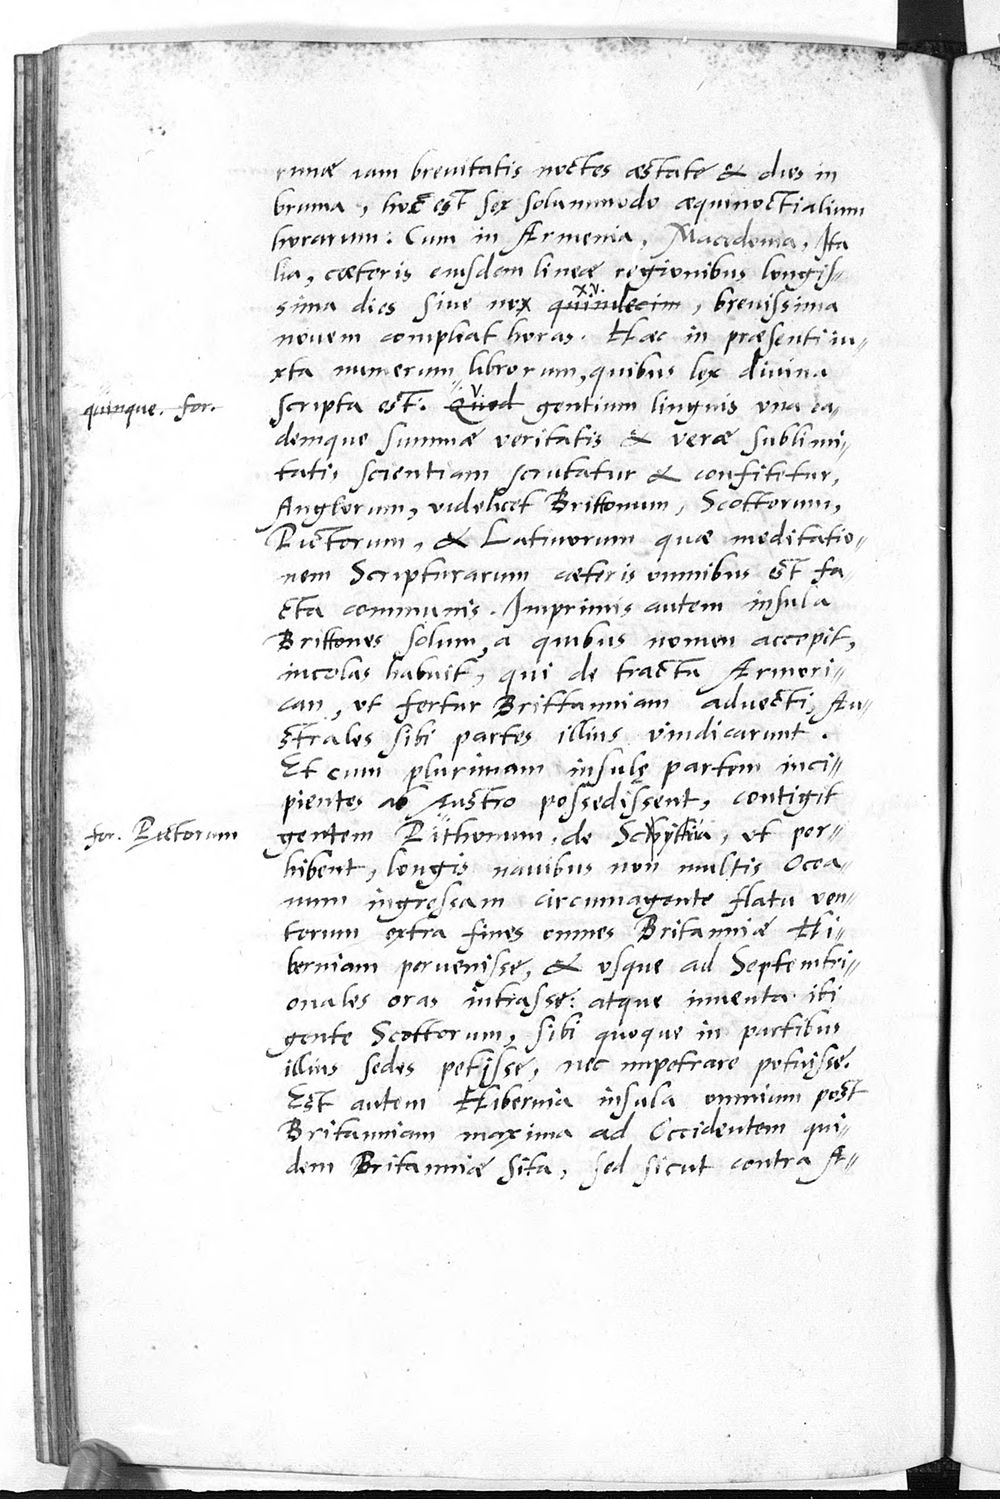 rumæ iam breuitatis noctes æstate & dies in
bruma, hoc est sex solummodo æquinoctialium
horarum: Cum in Armenia, Macedonia, Ita
lia, cæteris eiusdem lineæ regionibus longis//
xv.
sima dies siue nox quindecim, breuissima
nouem compleat horas. Hæc in præsenti iu-
xta numerum librorum, quibus lex diuina
quinque. for.
v
scripta est. Quod gentium linguis una ea-
demque summæ veritatis & veræ sublimi//
tatis scientiam scrutatur & confitetur,
Anglorum, videlicet Brittonum, Scottorum,
Pictorum, & Latinorum quæ meditatio-
nem Scripturarum cæteris omnibus est fa-
cta communis. Imprimis autem insula
Brittones solum, a quibus nomen accepit,
incolas habuit, qui de tractu Armori//
can, ut fertur Brittanniam aduecti, Au//
strales sibi partes illius vindicarunt.
Et cum plurimam insulę partem inci//
pientes ab Austro possedissent, contigit
for. Pictorum
gentem Pithonum, de Scythia, ut per//
hibent, longis nauibus non multis Ocea-
num ingressam circumagente flatu ven//
torum extra fines omnes Britanniæ Hi//
berniam peruenisse, & usque ad Septemtri//
onales oras intrasse: atque inuenta ibi
gente Scottorum, sibi quoque in partibus
illius sedes petijsse, nec impetrare potuisse.
Est autem Hibernia insula omnium post
Britanniam maxima ad Occidentem qui//
dem Britanniæ sita, sed sicut contra A//